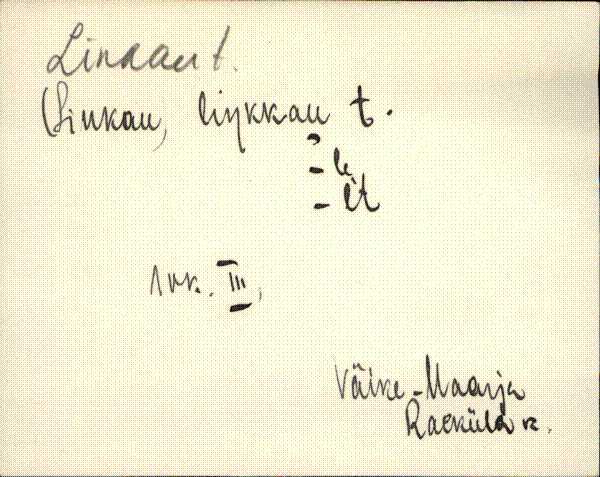 Linkau t.
(Sinkau, liŋkkau t.
- le
- it
1 vk. III,
Väike-Maarja
Raeküla k.